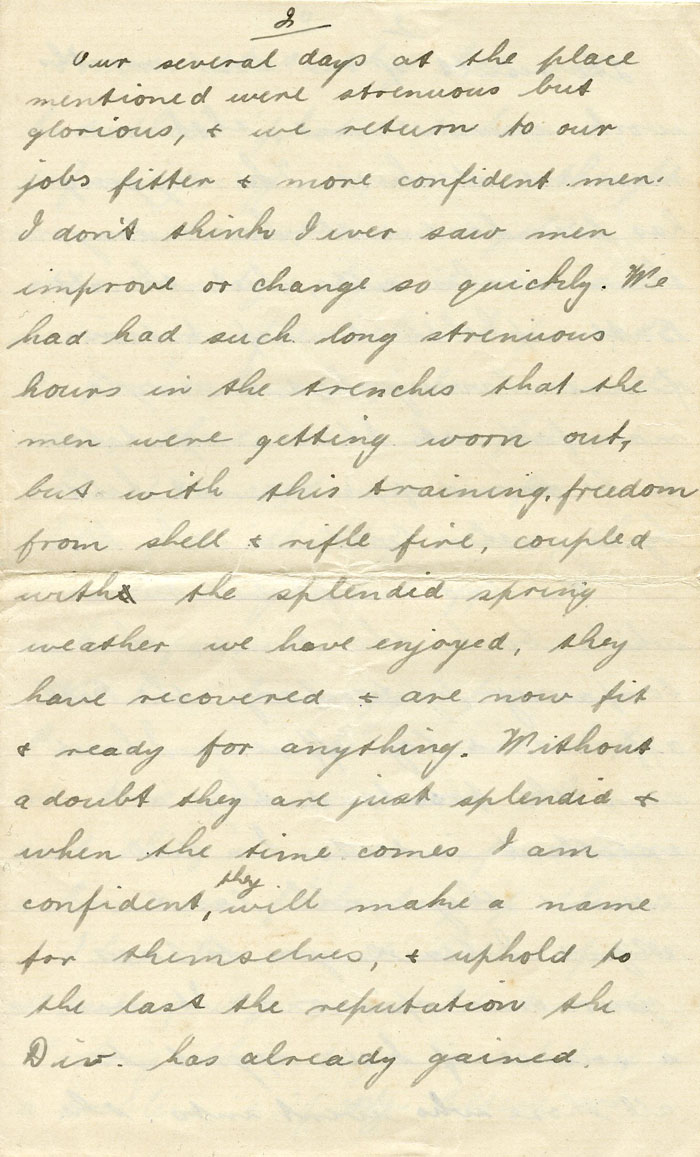 2
Our several days at the place
mentioned were strenuous but
glorious, & we return to our
jobs fitter & more confident men.
I don't think I ever saw men
improve or change so quickly. We
had had such long strenuous
hours in the trenches that the
men were getting worn out,
but with this training, freedom
from shell & rifle fire, coupled
with the splendid spring
weather we have enjoyed, they
have recovered & are now fit
& ready for anything. Without
a doubt they are just splendid &
when the time comes I am
confident, they will make a name
for themselves, & uphold to
the last the reputation the
Div. has already gained.